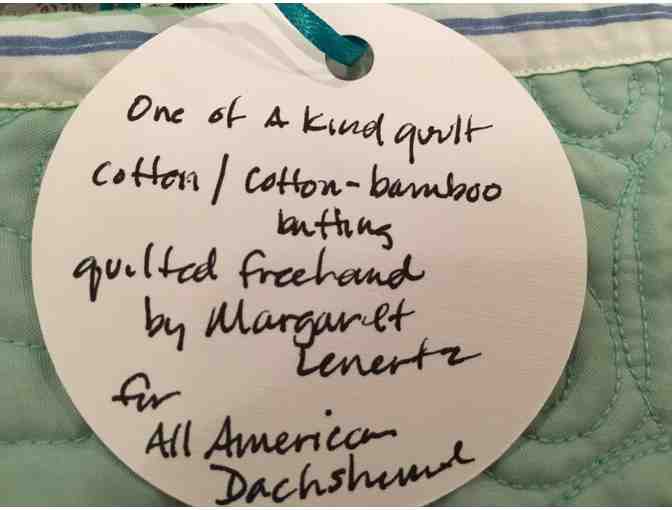 One of A kind quilt
cotton / cotton-bamboo
batting
quilted freehand
by Margaret
Lenertz
for
All American
Dachshund